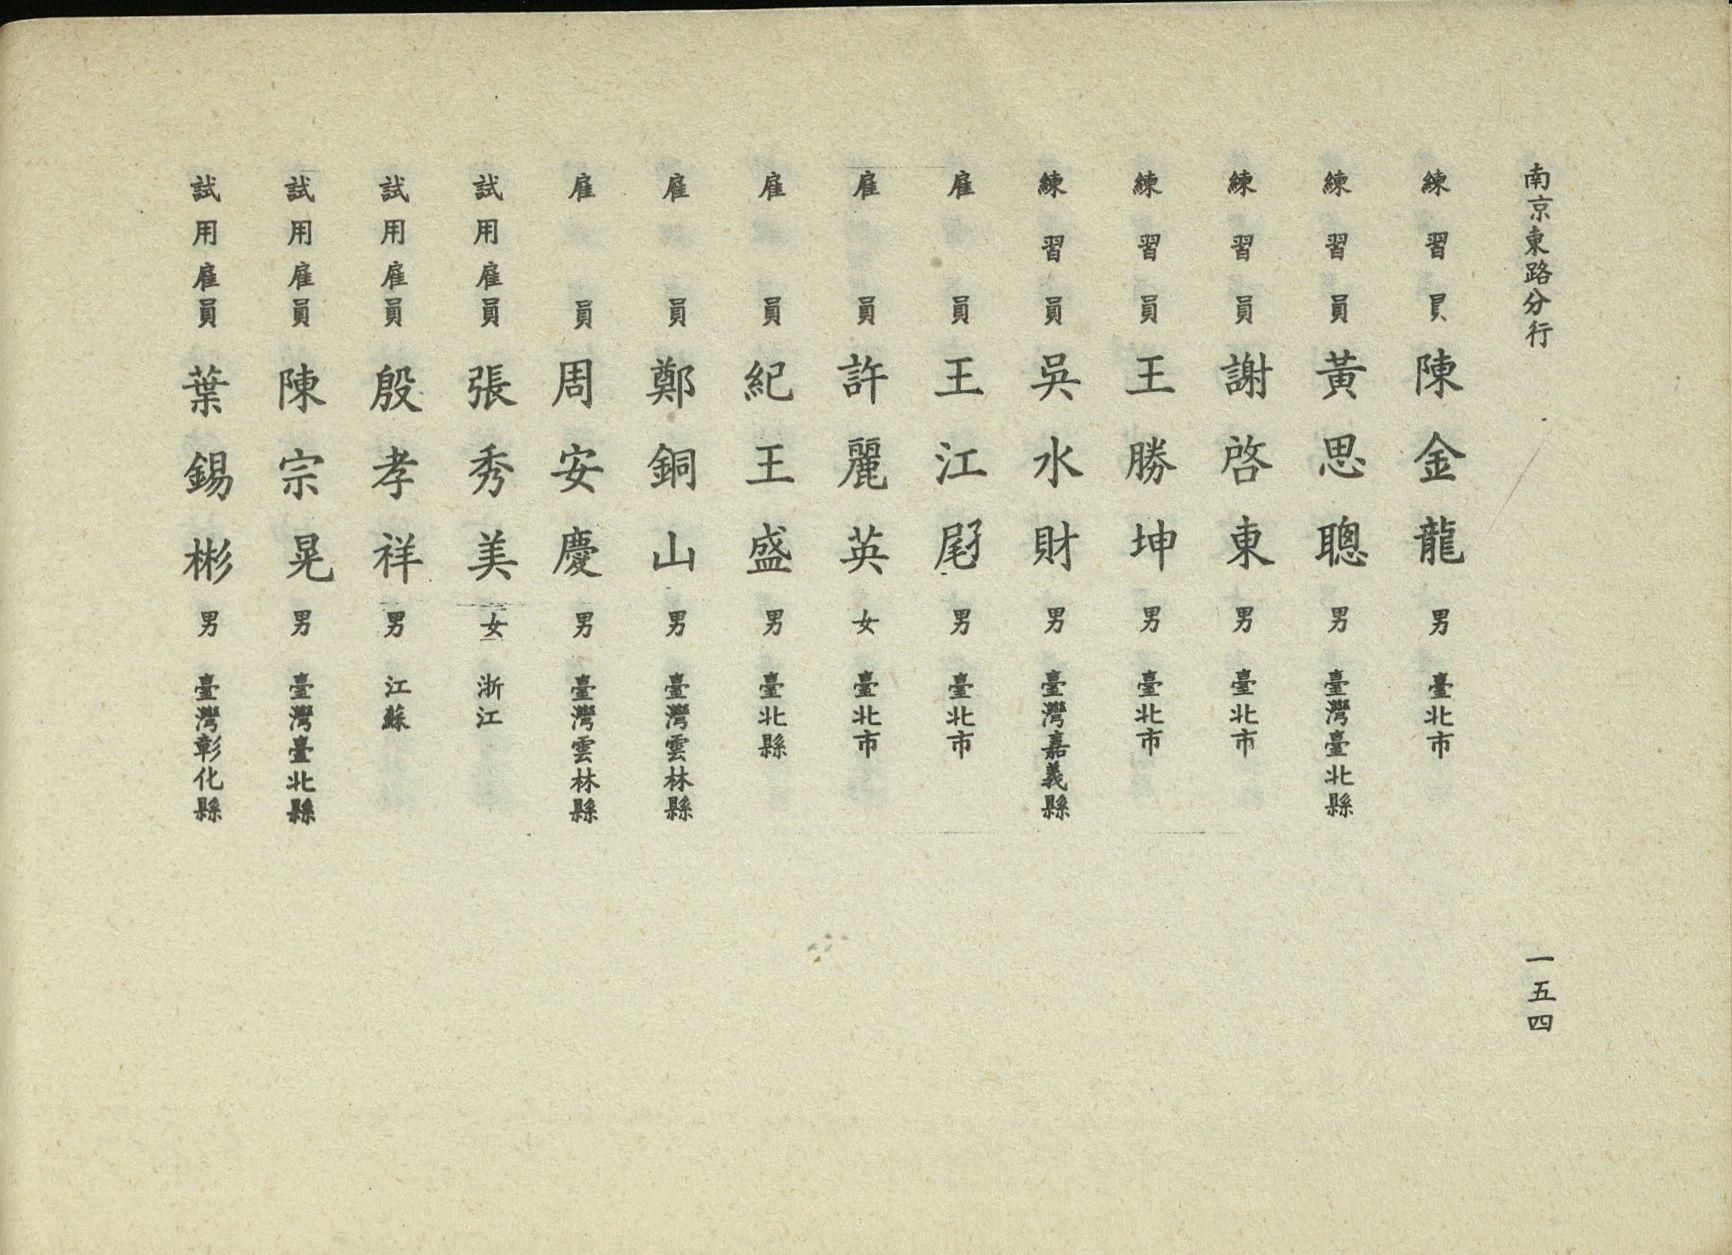 南京東路分行
一五四
練習員 陳金龍 男 臺北市
練習員 黃思聰 男 臺灣臺北縣
練習員 謝啓東 男 臺北市
練習員 王勝坤 男 臺北市
練習員 吳水財 男 臺灣嘉義縣
雇員 王江 男 臺北市
雇員 許麗英 女 臺北市
雇員 紀王盛 男 臺北縣
雇員 鄭銅山 男 臺灣雲林縣
雇員 周安慶 男 臺灣雲林縣
試用雇員 張秀美 女 浙江
試用雇員 殷孝祥 男 江蘇
試用雇員 陳宗晃 男 臺灣臺北縣
試用雇員 葉錫彬 男 臺灣彰化縣